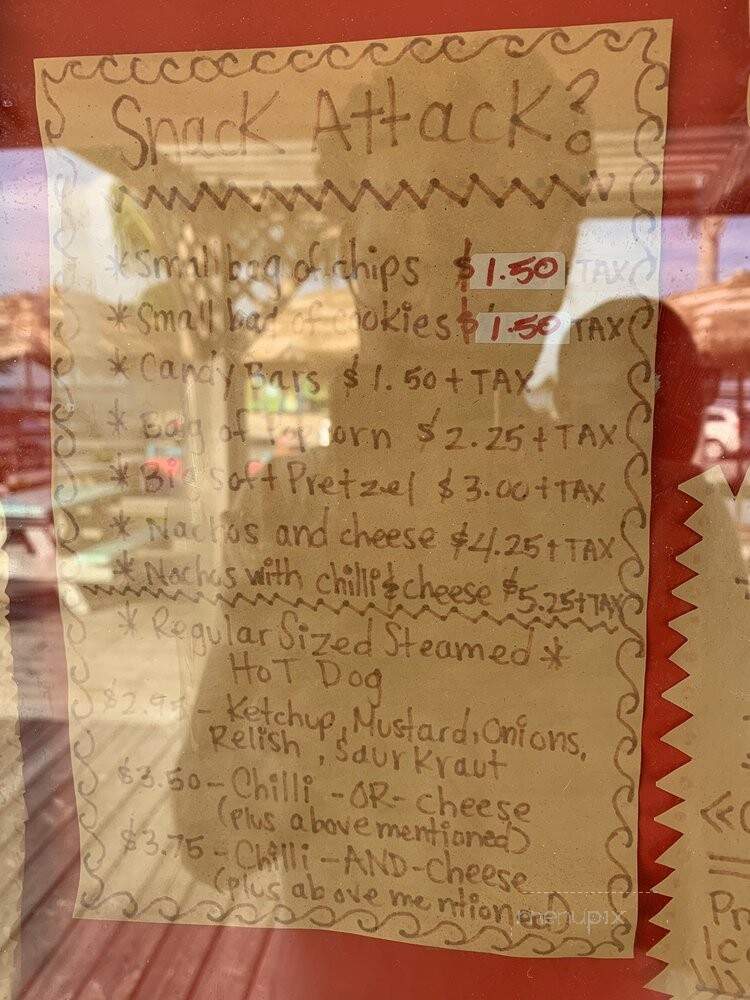 Snack Attack?
*Small bag of chips $1.50 TAX
*Small bag of cookies $1.50 TAX
*Candy Bars $1.50+TAX
*Bag of popcorn $2.25+TAX
*Big Soft Pretzel $3.00+TAX
*Nachos and cheese $4.25+TAX
*Nachos with chilli & cheese $5.25+TAX
*Regular Sized Steamed*
HoT Dog
$2.95 - Ketchup, Mustard, Onions,
Relish, Saur Kraut
$3.50 - Chilli -OR- cheese
(plus above mentioned)
$3.75 - Chilli -AND- Cheese
(plus above mentioned)
menupix